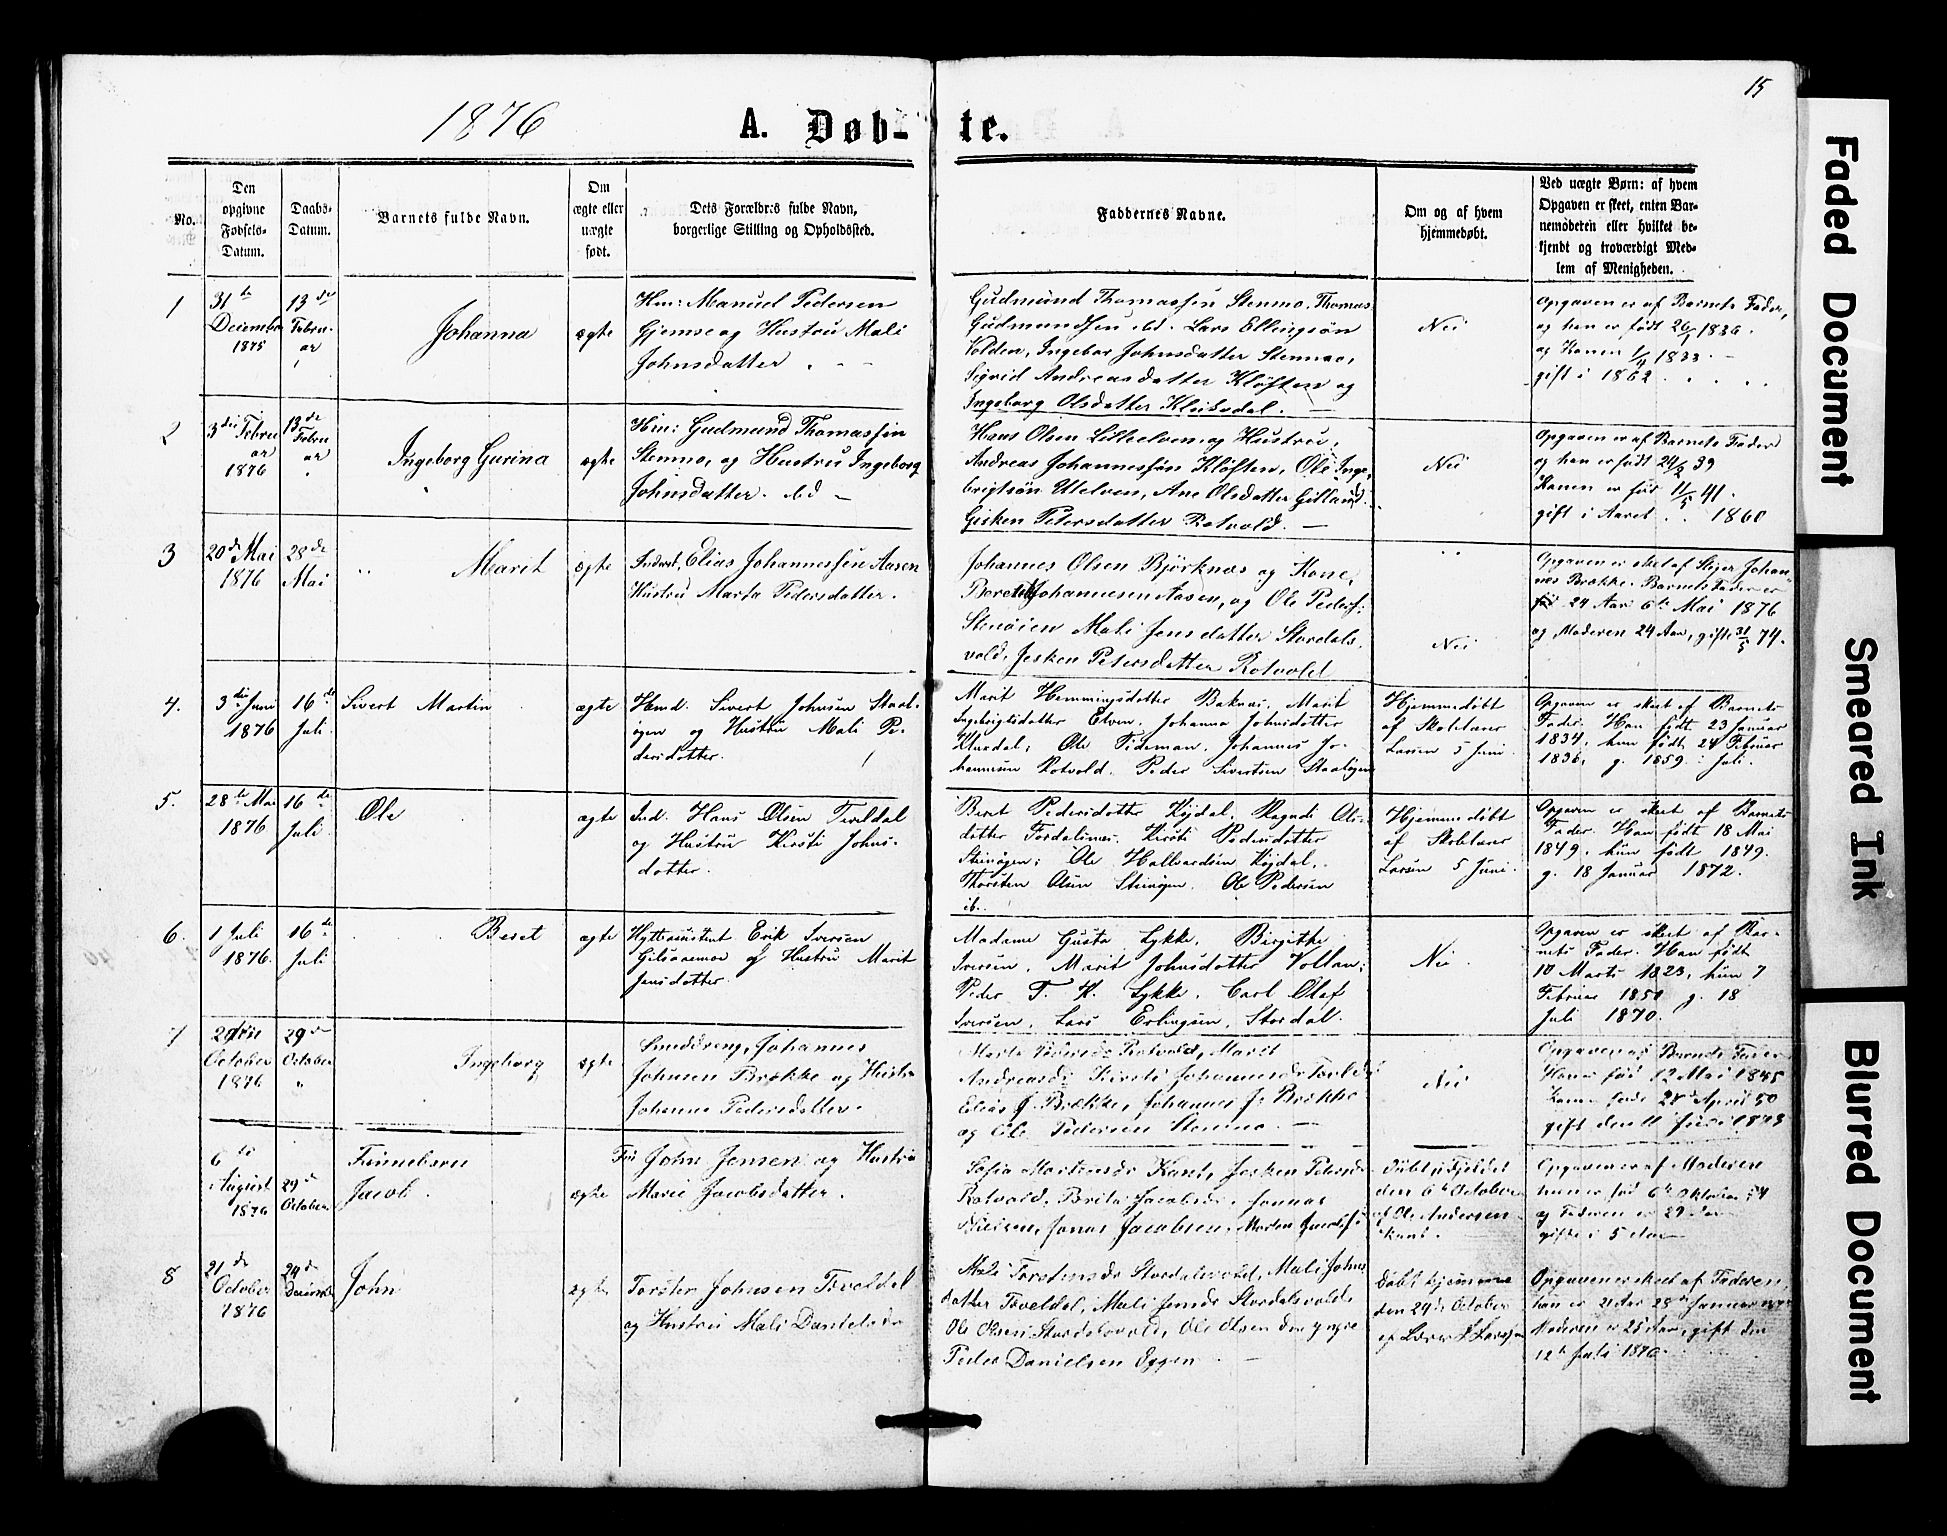 15
1876 A. Døb- te.
No.
Den opgivne Fødsels-Datum.
Daabs-Datum.
Barnets fulde Navn.
Om ægte eller uægte født.
Dets Forældres fulde Navn, borgerlige Stilling og Opholdssted.
Faddernes Navne.
Om og af hvem hjemmedøbt.
Ved uægte Børn: af hvem Opgaven er skeet, enten Barnemoderen eller hvilket bekjendt og troværdigt Medlem af Menigheden.
1
31te
Decembr
1875
13de
Febru-
ar
Johanna
ægte
Hm: Manuel Pedersen
Gjemse og Hustru Mali
Johnsdatter
Gudmund Thomassen Stenmo, Thomas
Gudmundsen ibd. Lars Ellingsøn
Volden, Ingebor Johnsdatter Stenmo,
Sigrid Andreasdatter Kløften og
Ingeborg Olsdatter
Nei
Opgaven er af Barnets Fader,
og han er født 26/1 1836.
og Konen 1/4 1833.
gift i 1862.
2
3die Febru
ar
1876
13de
Febru
ar
Ingeborg Gurina
ægte
Hm: Gudmund Thomassen
Stenmo, og Hustru Ingeborg
Johnsdatter. ibd
Hans Olsen Lilleelven og Hustru,
Andreas Johannessøn Kløften, Ole Inge-
brigtsøn Utelven, Ane Olsdatter Gilland.
Gisken Petersdatter Rotvold.
Nei
Opgaven er af Barnets Fader
og han er født 24/2 39
Konen er fød 11/5 41.
gift i Aaret 1860
3
20de Mai
1876
28de
Mai
Marit
ægte
Inderst, Elias Johannessen Aasen
Hustru Marta Pedersdatter.
Johannes Olsen Bjørknæs og Kone,
Johannesen Aasen, og Ole Peders:
Stenøien Mali Jensdatter Stordals-
vold, Jesken Petersdatter Rotvold
Nei
Opgaven er skeet af Johan-
nes Brække. Barnets Fader er
24 Aar 6te Mai 1876
og Moderen 24 Aar, gifte 31/5 74.
4.
3die Juni
1876
16de
Juli
Sivert Martin
ægte
Hmd. Sivert Johnsen Staal-
øgen og Hustru Mali Pe-
dersdotter.
Marit Hemmingsdotter Marit
Ingebrigtsdotter Elven. Johanna Johnsdotter
Ole Tideman. Johannes Jo-
hannesen Rotvold. Peder Sivertsen Staaløgen
Hjemmedöbt
af Skolelærer
Larsen 5 Juni.
Opgaven er skeet af Barnets
Fader. Han født 23 Januar
1834, hun født 24 Februar
1836, g. 1859 Juli.
5.
28de Mai
1876
16de
Juli
Ole
ægte
Ind. Hans Olsen Tveldal
og Hustru Kirsti Johns-
dotter.
Beret Pedersdotter Kojdal, Ragndi Ols-
dotter Kirsti Pedersdotter
Steinøgen; Ole Hallvardsen Kojdal,
Thorsten Olsen Steinøgen. Ole Pedersen
ib.
Hjemmedöbt
af Skolelærer
Larsen 5 Juni.
Opgaven er skeet af Barnets
Fader. Han født 18 Mai
1849. hun født 1849.
g. 18 Januar 1872.
6.
1 Juli
1876.
16de
Juli
Beret
ægte
Hytteassistent Erik Iversen
Gilsaamoe og Hustru Marit
Jensdotter.
Madame Gusta Lykke. Birgithe
Iversen. Marit Johnsdotter Vollan;
Peder T. K. Lykke. Carl Olaf
Iversen. Lars Erlingsen, Stordal.
Nei
Opgaven er skeet af Bar-
nets Fader. Han født
10 Marts 1823, hun 7
Februar 1850 g. 18
Juli 1870.
7
October
1876
29de
October
Ingeborg
ægte
Smeddreng, Johannes
Johnsen Brække og Hustru
Johanna Pedersdatter.
Rotvold, Marit
Andreasdr Kirsti Johannesdr
Elias J. Brække, Johannes J. Brække
og Ole Pedersen Stenmo
Nei
Opgaven af Barnets Fader
fød 12 Mai 1845
Konen født 28 April 50
gift den 11 Juni 1873
6te
August
1876
29de
October
Finnebarn
Jacob.
ægte
John Jensen og Hustru
Marie Jacobsdatter.
Sofia Martinsdr Kant, Jesken Petersdr
Rotvold, Brita Jacobsdr. Jonnas
Nielsen, Jonas Jacobsen, Morten
Döbt i Fjeldet
den 6te October
af Ole Andersen
Kant.
Opgaven er af Moderen
hun er fød 6te Oktober 54
og Faderen er 29 Aar
gifte i 5 Aar
8
21de
October
1876
24de
John
ægte
Torsten Johnsen Tveldal
og Hustru Mali Danielsdr
Mali Torstensdr Stordalsvold, Mali Johns
datter Tveldal, Mali Jensdr Stordalsvold
Ole Olsen Stordalsvold, Ole Olsen den yngre
Peder Danielsen Eggen
Döbt hjemme
den 24de October
af Lærer L Larsen
Opgaven er skeet af Faderen,
han er 21 Aar 28de Januar
Moderen er 25 Aar, gift den
12te Juli 1876.
Faded Document
Smeared Ink
Blurred Document